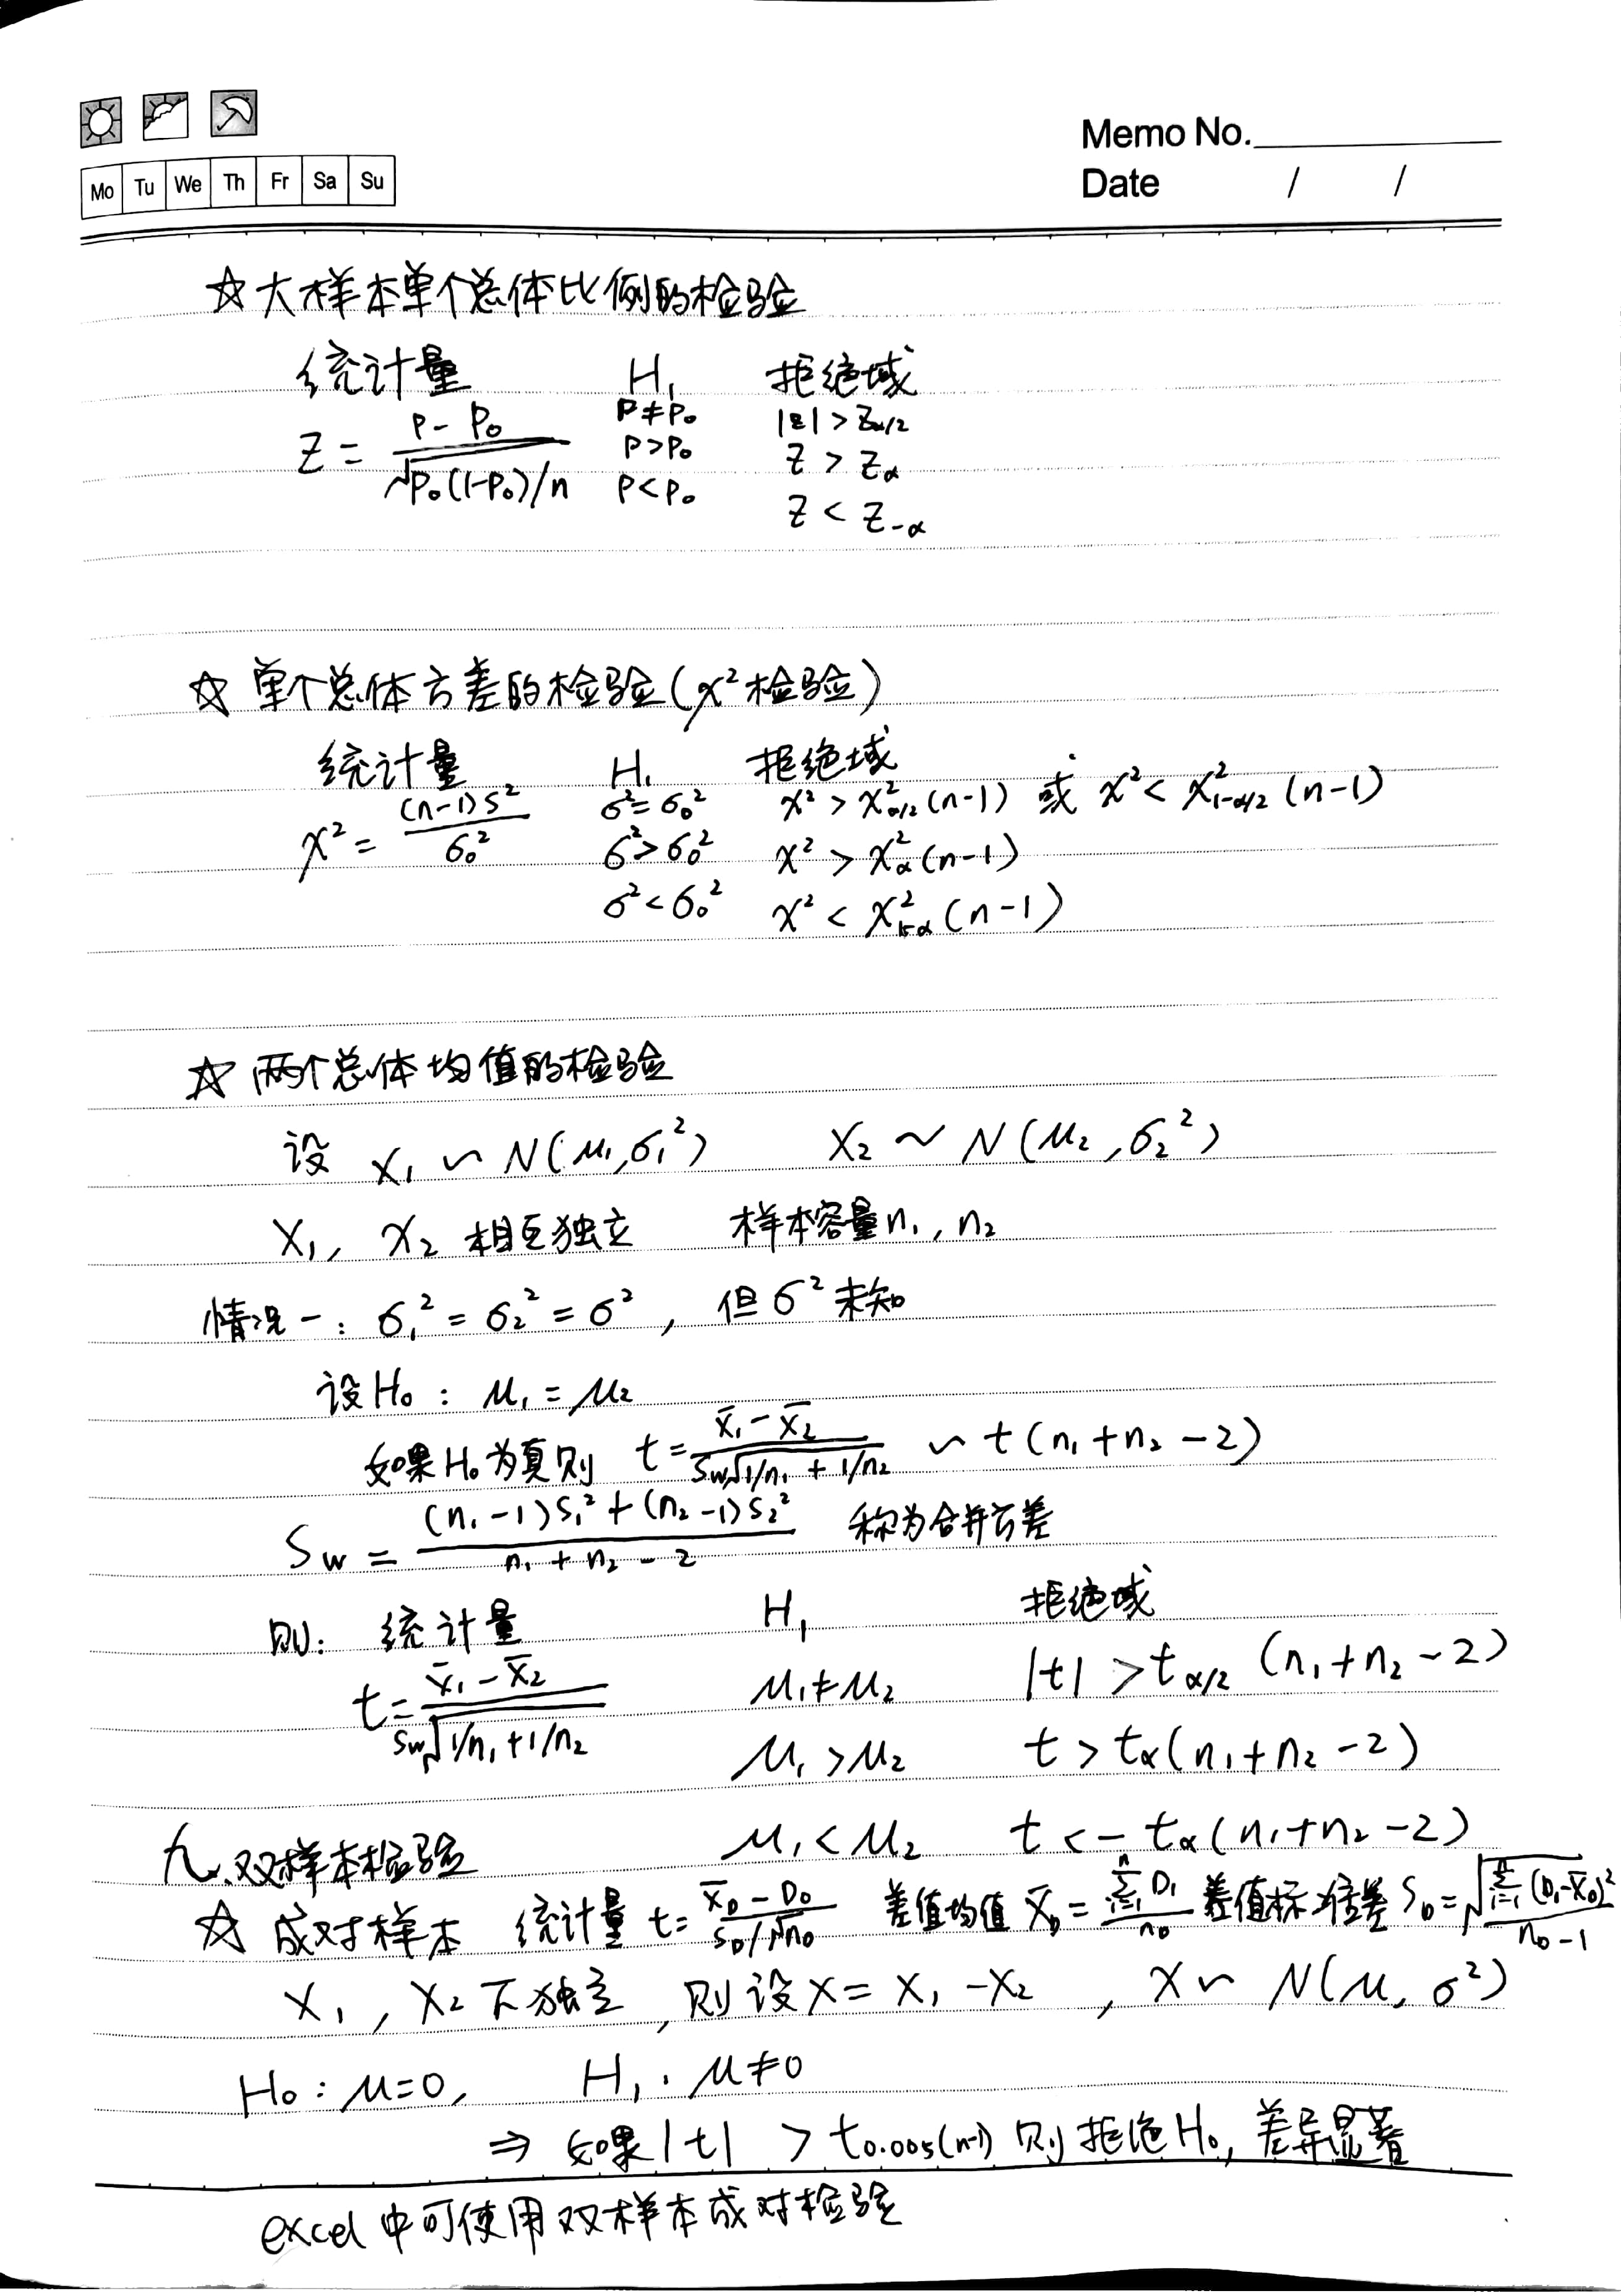 Memo No.
Mo Tu We Th Fr Sa Su
Date / /
☆大样本单个总体比例的检验
统计量 H₁ 拒绝域
Z = (P - P₀) / √(P₀(1-P₀)/n)
P≠P₀ |Z| > Z_{α/2}
P>P₀ Z > Z_α
P<P₀ Z < Z_{-α}
☆ 单个总体方差的检验(χ²检验)
统计量 H₁ 拒绝域
χ² = (n-1)S² / σ₀²
σ²=σ₀² χ² > χ²_{α/2}(n-1) 或 χ² < χ²_{1-α/2}(n-1)
σ²>σ₀² χ² > χ²_α(n-1)
σ²<σ₀² χ² < χ²_{1-α}(n-1)
☆ 两个总体均值的检验
设 X₁ ~ N(μ₁,σ₁²) X₂ ~ N(μ₂,σ₂²)
X₁, X₂ 相互独立 样本容量n₁, n₂
情况一: σ₁² = σ₂² = σ², 但σ²未知
设H₀: μ₁ = μ₂
如果H₀为真则 t = (x̄₁ - x̄₂) / (Sw√(1/n₁ + 1/n₂)) ~ t(n₁+n₂-2)
Sw = ((n₁-1)S₁² + (n₂-1)S₂²) / (n₁+n₂-2) 称为合并方差
则: 统计量 H₁ 拒绝域
t = (x̄₁ - x̄₂) / (Sw√(1/n₁+1/n₂)) μ₁≠μ₂ |t| > t_{α/2} (n₁+n₂-2)
μ₁>μ₂ t > t_α(n₁+n₂-2)
μ₁<μ₂ t < -t_α(n₁+n₂-2)
九.双样本检验
☆ 成对样本 统计量 t = (x̄_D - D₀) / (S_D/√n_D) 差值均值 x̄_D = Σ_{i=1}^{n} D_i / n_D 差值标准差 S_D = √(Σ_{i=1}^{n}(D_i-x̄_D)² / (n_D-1))
X₁, X₂ 不独立, 则设X = X₁-X₂, X ~ N(μ, σ²)
H₀: μ=0, H₁: μ≠0
⇒ 如果|t| > t₀.₀₀₅(n-1) 则拒绝H₀, 差异显著
excel 中可使用双样本成对检验